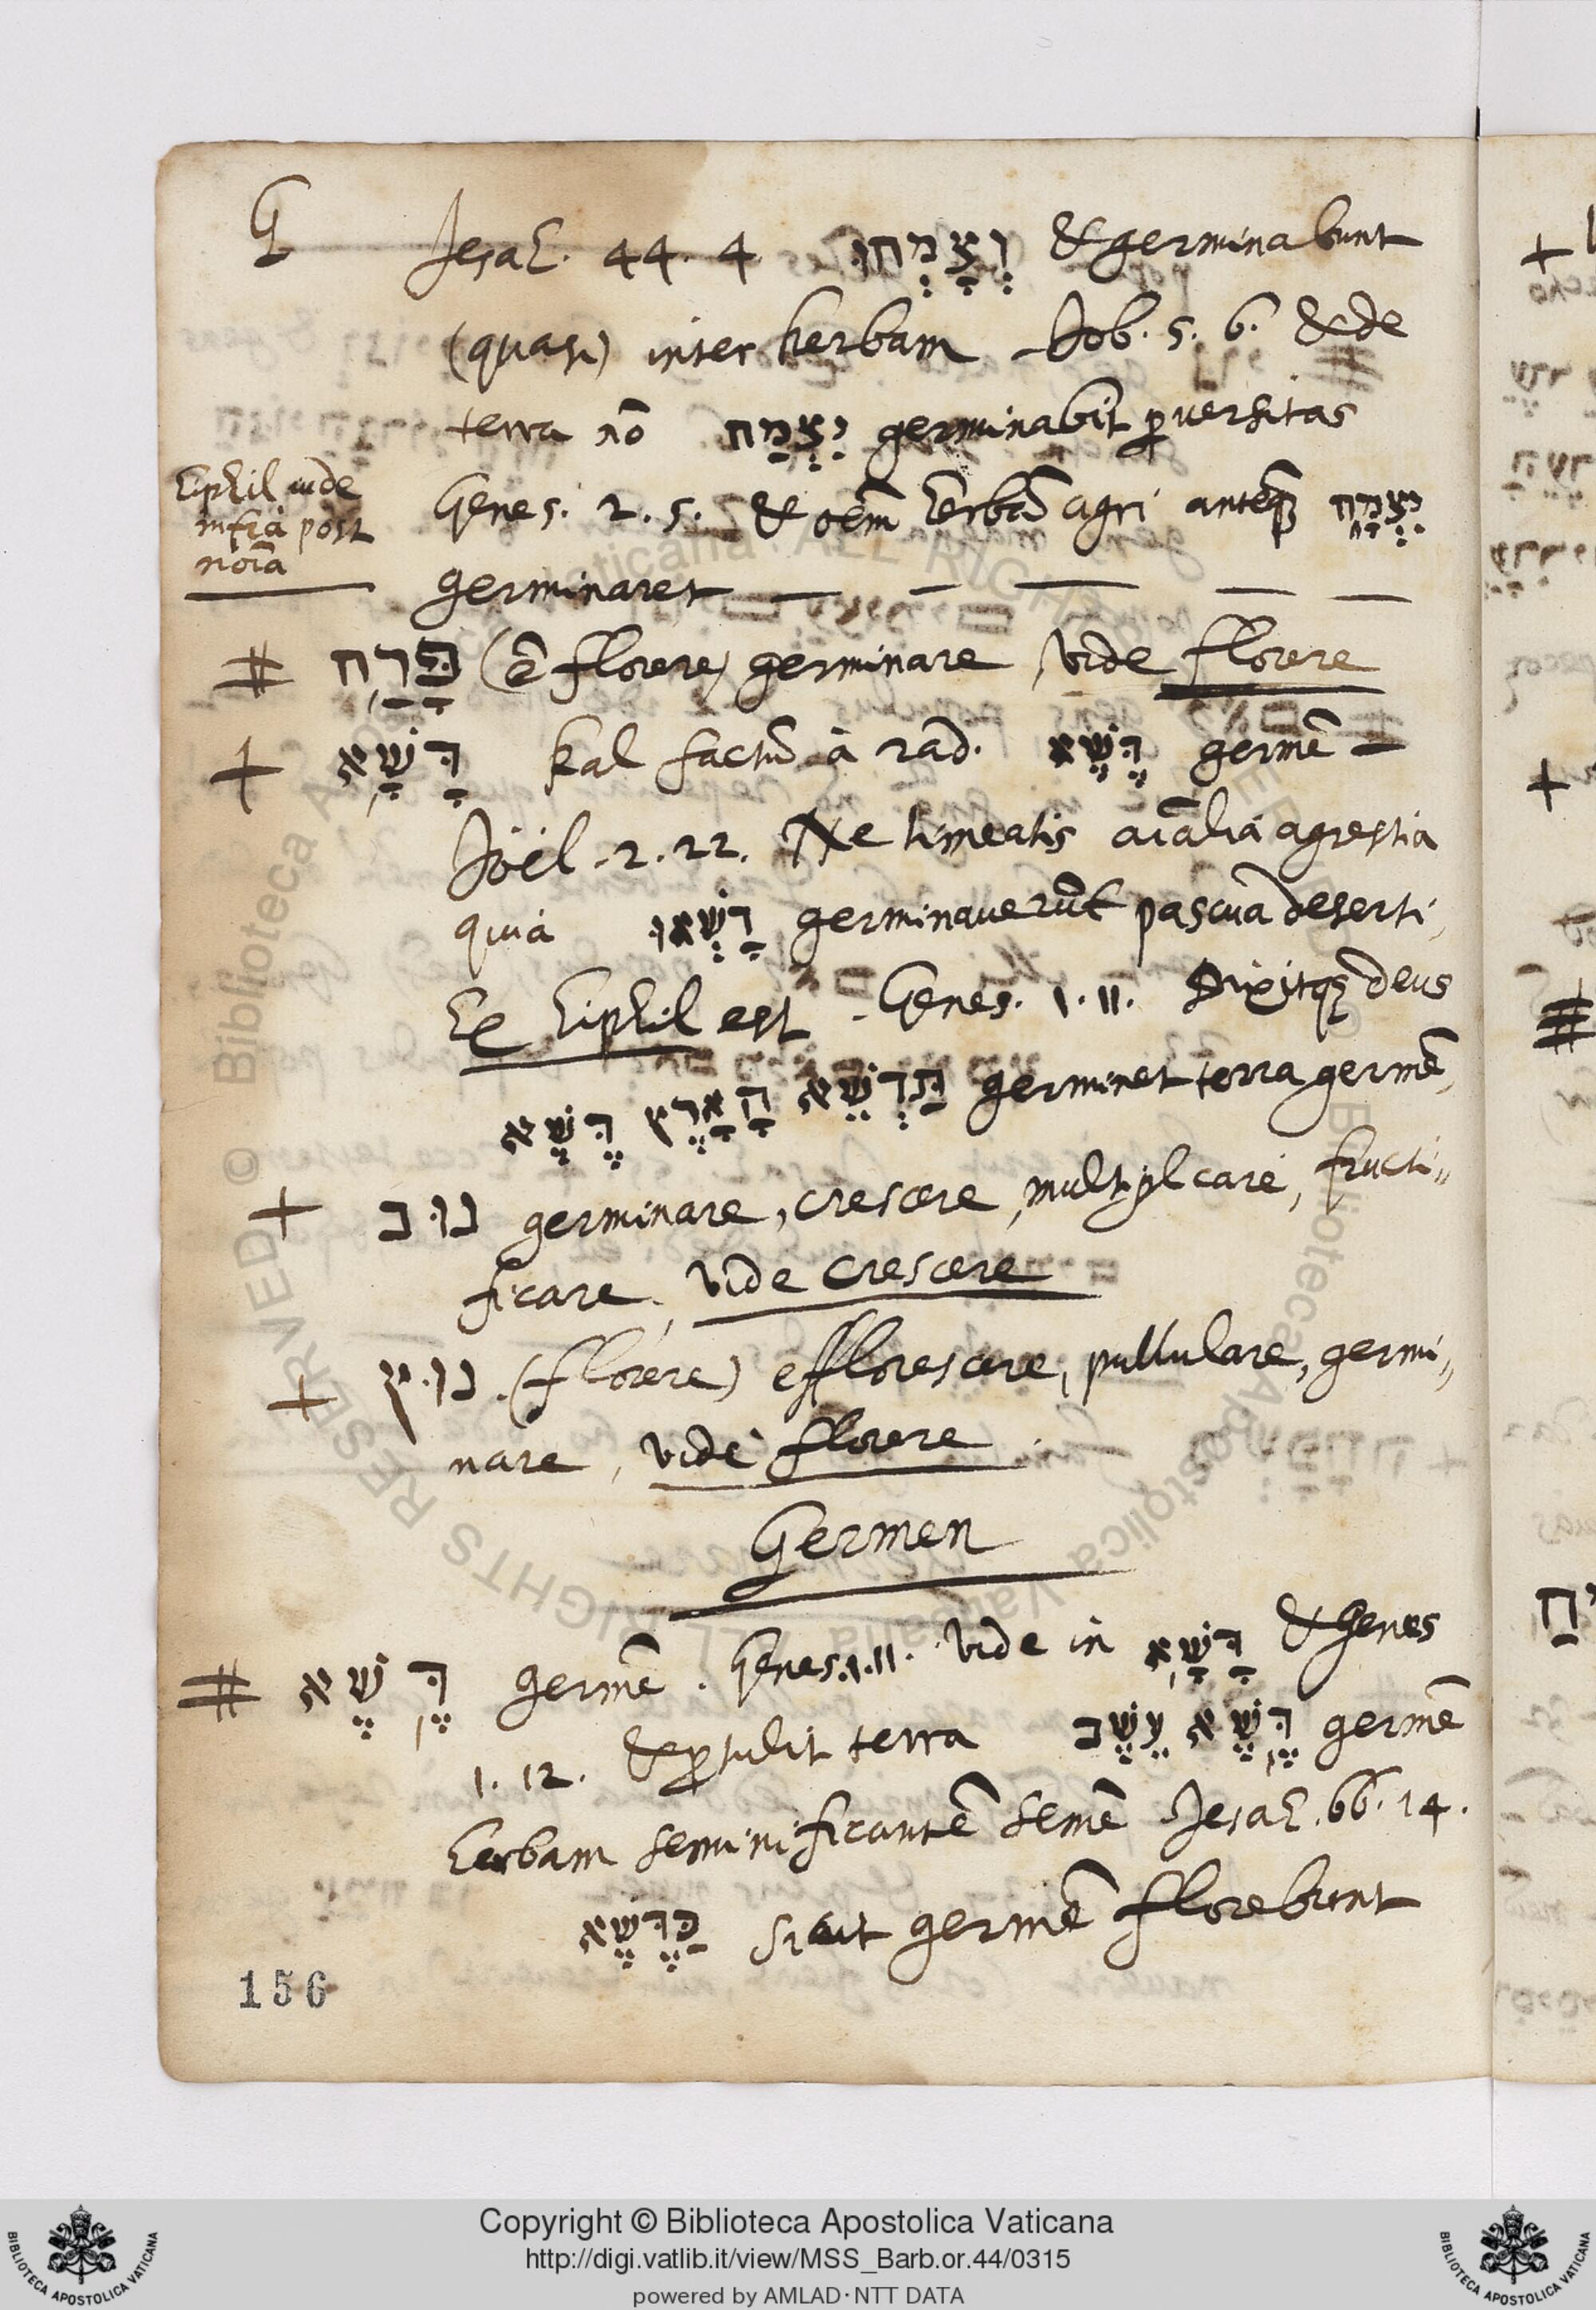 G
Jesah. 44. 4 וְצָמְחוּ & germinabunt
(quasi) inter herbam Job. 5. 6. & de
terra nō יִצְמַח germinabit pversitas
Hiphil uide
infrà post
noīa
Genes. 2. 5. & oēm herbā agri anteq̄ יִצְמָח
germinaret
# פָּרַח (ē florere) germinare, vide florere
+ דָּשָׁא kal factū à rad. דֶּשֶׁא germē
Joël. 2. 22. Ne timeatis aīalia agrestia
quia דָשְׁאוּ germinauerūt pascua deserti,
Ex Hiphil est Genes. 1. 11. Dixitq; deus
תַּדְשֵׁא הָאָרֶץ דֶּשֶׁא germinet terra germē,
+ נוּב germinare, crescere, multiplicare, fructi„
ficare, vide crescere
+ נוּץ (florere) efflorescere, pullulare, germi„
nare, vide florere
Germen
# דֶּשֶׁא germē. Genes. 1. 11. vide in דָּשָׁא & Genes
1. 12. & ptulit terra דֶּשֶׁא עֵשֶׂב germē
herbam seminificantē semē Jesah. 66. 14.
כַּדֶּשֶׁא sicut germē florebunt
156
Copyright © Biblioteca Apostolica Vaticana
http://digi.vatlib.it/view/MSS_Barb.or.44/0315
powered by AMLAD·NTT DATA
BIBLIOTECA APOSTOLICA VATICANA
BIBLIOTECA APOSTOLICA VATICANA